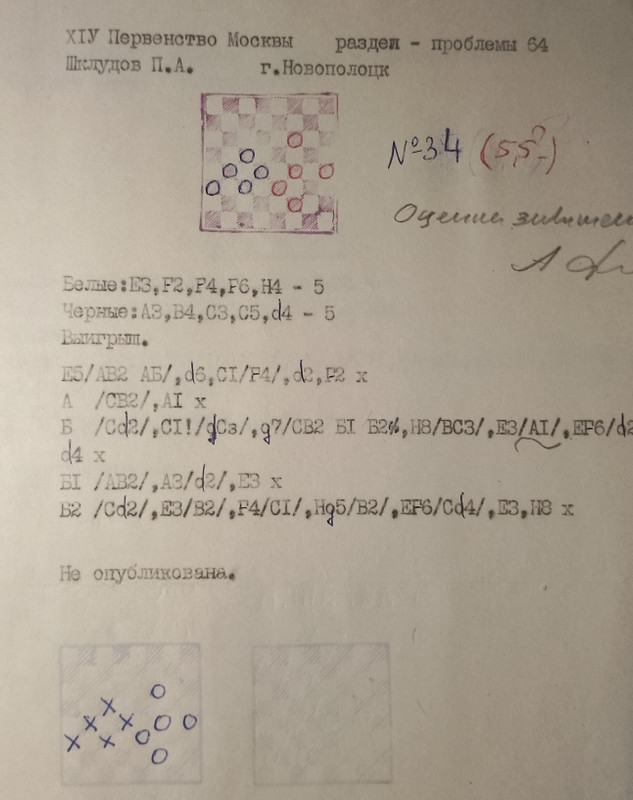 XIУ Первенство Москвы раздел - проблемы 64
Шклудов П.А. г.Новополоцк
№34 (5,5?-)
Оценка
Белые:E3,F2,F4,F6,H4 - 5
Черные:A3,B4,C3,C5,d4 - 5
Выигрыш.
E5/AB2 AБ/,d6,CI/F4/,d2,F2 x
A /CB2/,AI x
Б /Cd2/,CI!/dC3/,g7/CB2 БI Б2/,H8/BC3/,E3/AI/,EF6/d2
d4 x
БI /AB2/,A3/d2/,E3 x
Б2 /Cd2/,E3/B2/,F4/CI/,Hg5/B2/,EF6/Cd4/,E3,H8 x
Не опубликована.